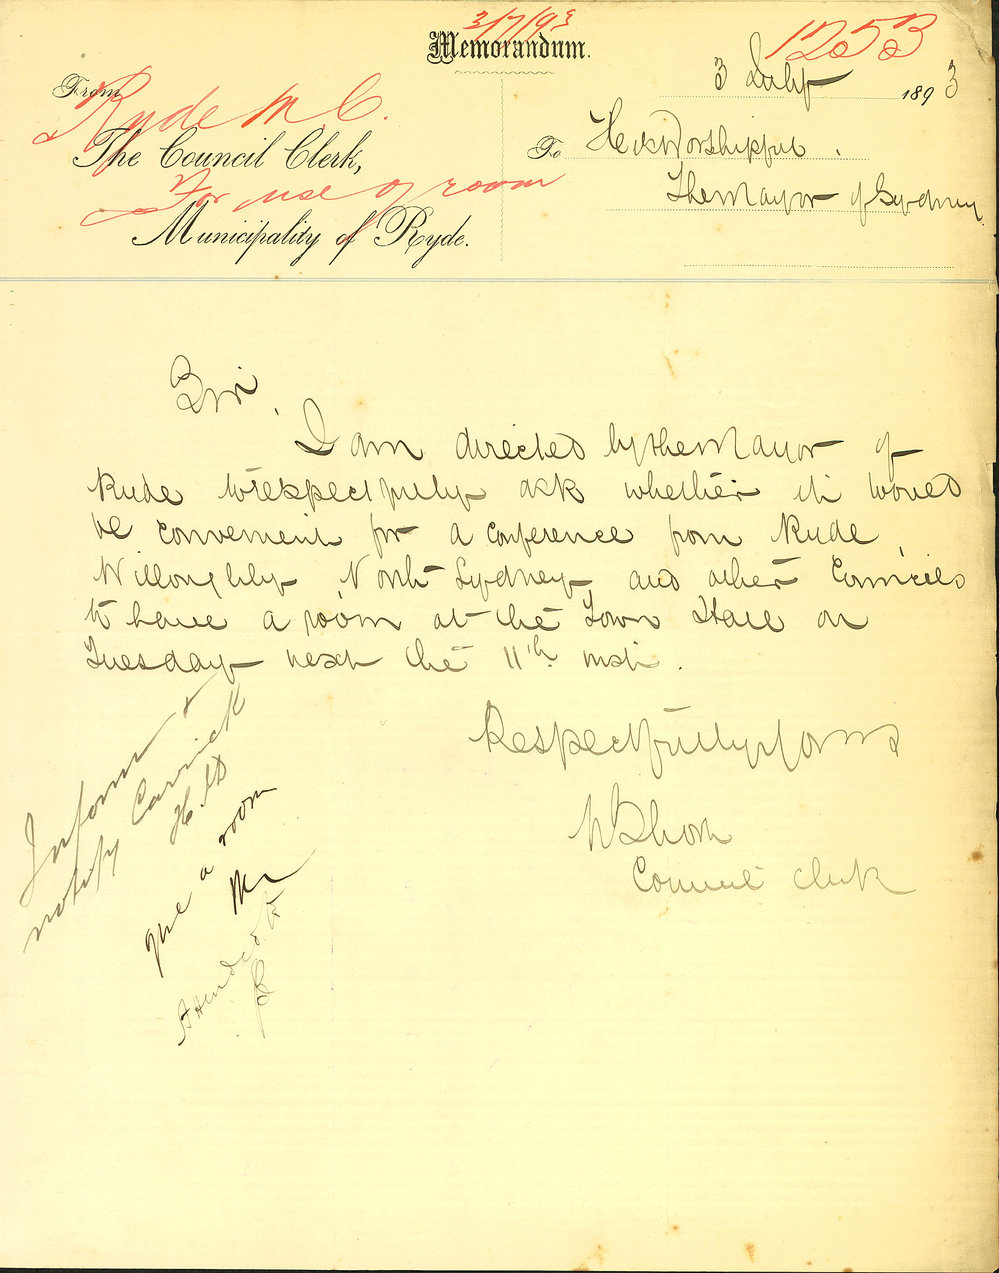 3/7/93
Memorandum.
1253
3 July 1893
From
Ryde M. C.
The Council Clerk,
For use of room
Municipality of Ryde.
To His Worshipful
The Mayor of Sydney
Sir,
I am directed by the Mayor of
Ryde to respectfully ask whether it would
be convenient for a conference from Ryde,
Willoughby, North Sydney and other Councils
to have a room at the Town Hall on
Tuesday next the 11th inst.
Respectfully yours
Council Clerk
Inform &
notify Carrick
give a room
Attended to